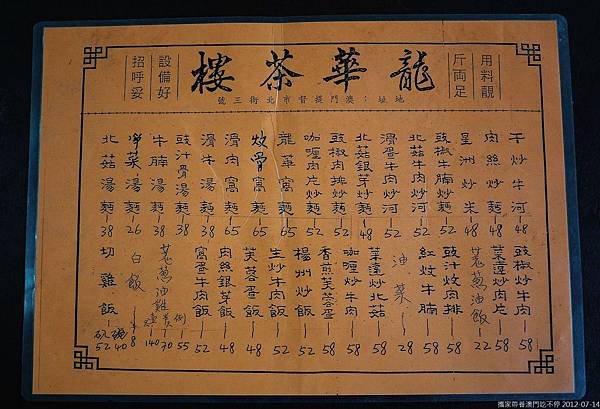 龍華茶樓
地址：澳門提督市北街三號
用料靚
斤両足
設備好
招呼妥
干炒牛河 48
肉絲炒麵 48
星洲炒米 48
豉椒牛腩炒麵 52
北菇牛肉炒河 52
滑蛋牛肉炒河 52
北菇銀芽炒麵 48
豉椒肉排炒麵 52
咖喱肉片炒麵 52
龍華窩麵 65
炆骨窩麵 65
滑肉窩麵 65
滑牛湯麵 38
豉汁骨湯麵 38
牛腩湯麵 38
淨菜湯麵 26
北菇湯麵 38
豉椒炒牛肉 58
菜薳炒肉片 58
羌葱油飯 22
豉汁炆肉排 58
紅炆牛腩 58
油菜 28
菜薳炒北菇 58
咖喱炒牛肉 58
香煎芙蓉蛋 58
楊州炒飯 52
生炒牛肉飯 52
芙蓉蛋飯 48
肉絲銀芽飯 48
窩蛋牛肉飯 52
羌葱油雞 例 55 70 140
白飯 8
切雞飯 碗 40 52
攜家帶眷澳門吃不停 2012-07-14